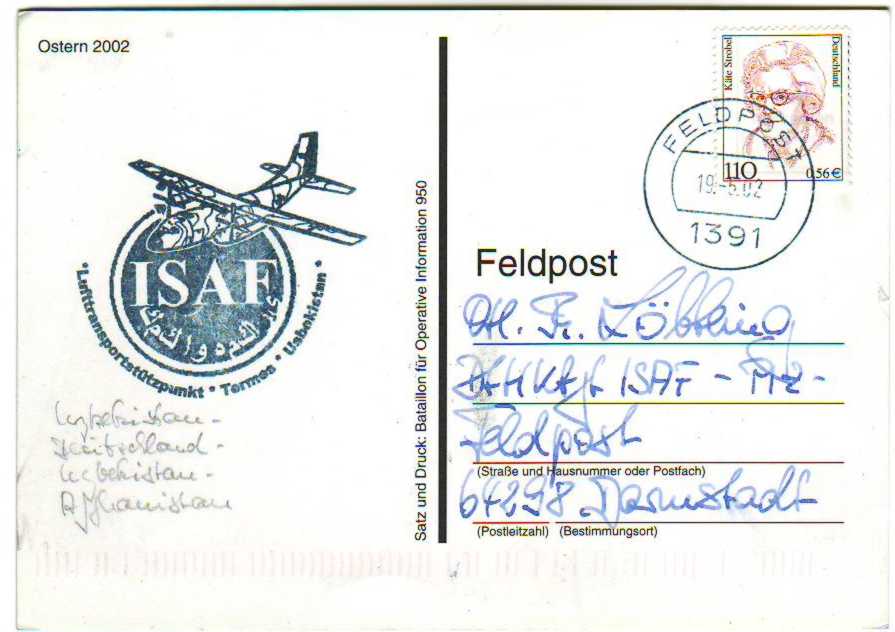 Ostern 2002
Käte Strobel
Deutschland
110
0.56€
FELDPOST
19.-5.02
1391
ISAF
*Lufttransportstützpunkt * Termes * Usbekistan *
Satz und Druck: Bataillon für Operative Information 950
Feldpost
ISAF -
Feldpost
(Straße und Hausnummer oder Postfach)
64298 Darmstadt
(Postleitzahl) (Bestimmungsort)
Usbekistan-
Deutschland-
Usbekistan-
Afghanistan